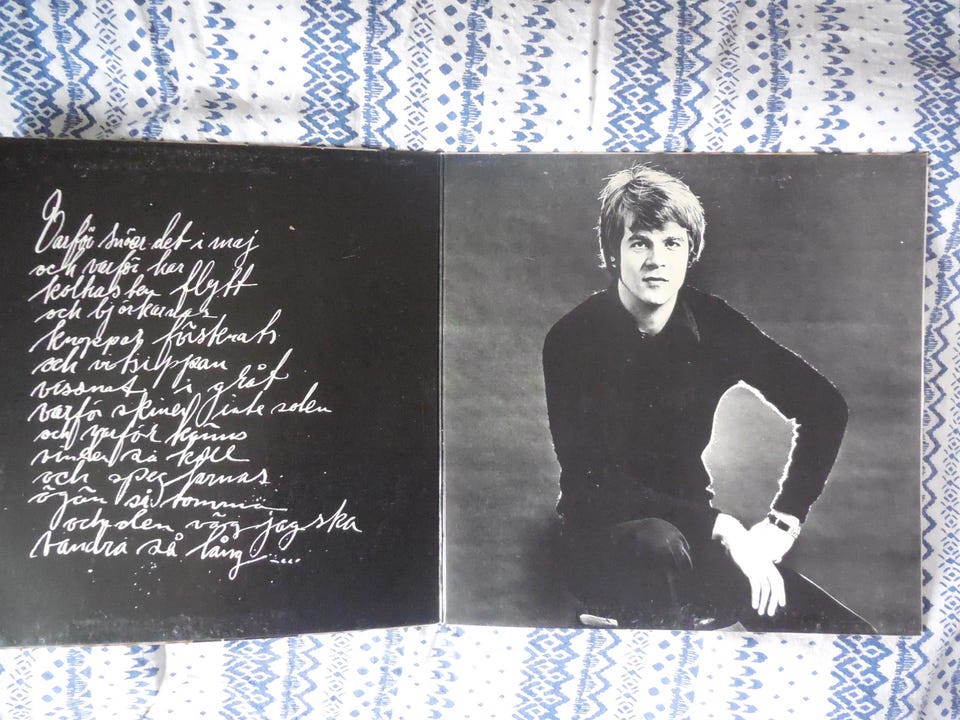 Varför snöar det i maj
och varför har
koltrasten flytt
och björkarnas
knoppar förskrats
och vitsippan
vissnat i gråt
varför skiner inte solen
och varför känns
vinden så kall
och speglarnas
ögon så tomma
och den väg jag ska
vandra så lång ....